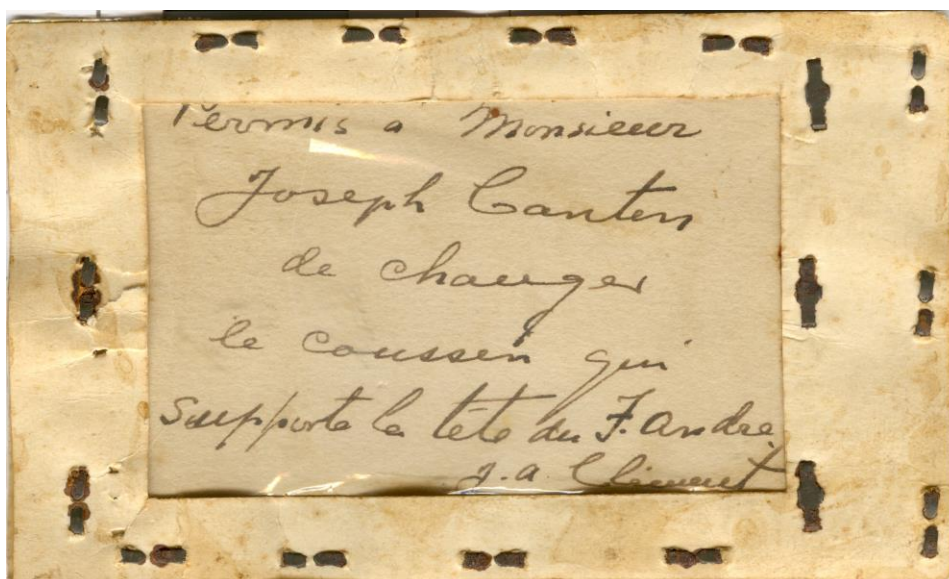 Permis a Monsieur
Joseph Canten
de changer
le coussin qui
supporte la tête du F. André.
J. A. Clément